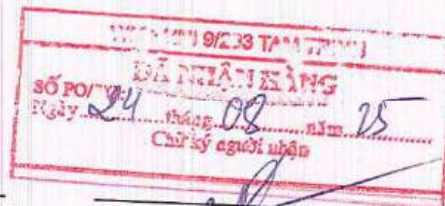 9/233 TAM TRINH
ĐÃ NHẬN HÀNG
SỐ PO/
Ngày 24 tháng 08 năm 25
Chữ ký người nhận